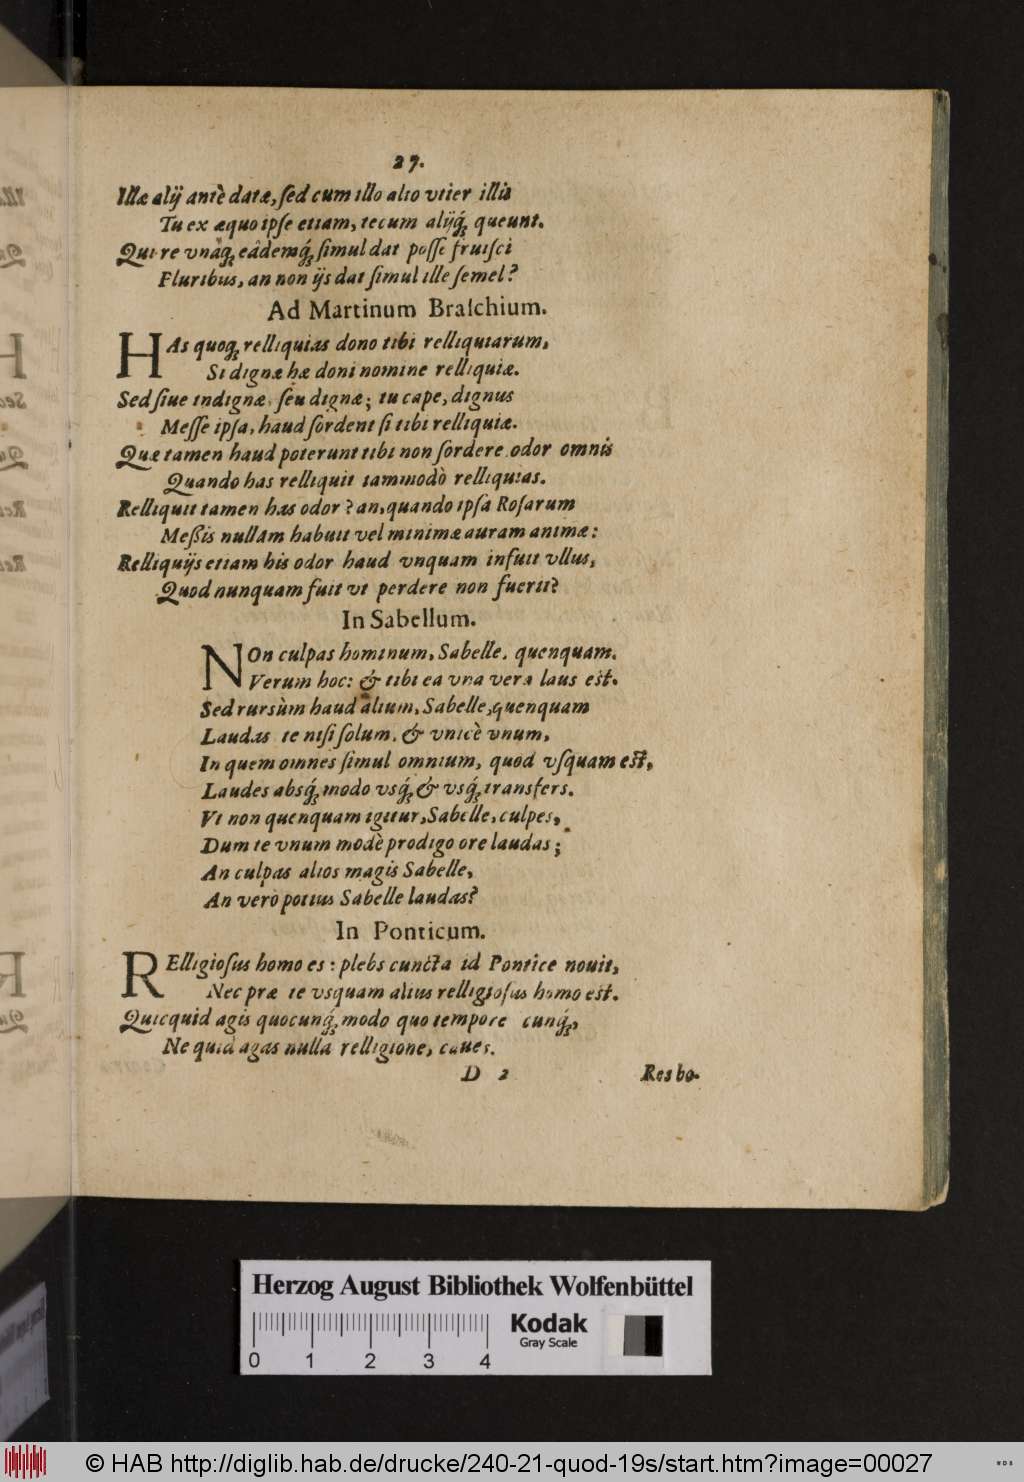 27.
Illæ alij antè datæ, ſed cum illo alio vtier illis
Tu ex æquo ipſe etiam, tecum alijq́ꝫ queunt.
Qui re vnâq́ꝫ eâdemq́ꝫ ſimul dat poſſe fruiſci
Pluribus, an non ijs dat ſimul ille ſemel?
Ad Martinum Braſchium.
HAs quoqꝫ relliquias dono tibi relliquiarum,
Si dignæ hæ doni nomine relliquiæ.
Sed ſiue indignæ, ſeu dignæ; tu cape, dignus
Meſſe ipſa, haud ſordent ſi tibi relliquiæ.
Quæ tamen haud poterunt tibi non ſordere, odor omnis
Quando has relliquit tammodò relliquias.
Relliquit tamen has odor? an, quando ipſa Roſarum
Meßis nullam habuit vel minimæ auram animæ:
Relliquijs etiam his odor haud vnquam infuit vllus,
Quod nunquam fuit vt perdere non fuerit?
In Sabellum.
NOn culpas hominum, Sabelle, quenquam.
Verum hoc: & tibi ea vna vera laus est.
Sed rursùm haud alium, Sabelle, quenquam
Laudas te niſi ſolum, & vnicè vnum,
In quem omnes ſimul omnium, quod vſquam est,
Laudes absq́ꝫ modo vsq́ꝫ & vsq́ꝫ transfers.
Vt non quenquam igitur, Sabelle, culpes,
Dum te vnum modè prodigo ore laudas;
An culpas alios magis Sabelle,
An verò potius Sabelle laudas?
In Ponticum.
RElligioſus homo es: plebs cuncta id Pontice nouit,
Nec præ te vsquam alius relligioſus homo est.
Quicquid agis quocunq́ꝫ modo quo tempore cunq́ꝫ,
Ne quid agas nulla relligione, caues.
D 2 Res bo-
Herzog August Bibliothek Wolfenbüttel
Kodak
Gray Scale
0 1 2 3 4
© HAB http://diglib.hab.de/drucke/240-21-quod-19s/start.htm?image=00027